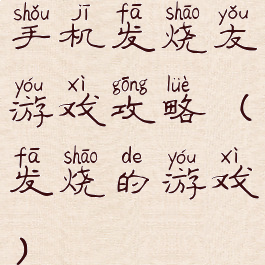 shǒu jī fā shāo yǒu
手机发烧友
yóu xì gōng lüè
游戏攻略（
fā shāo de yóu xì
发烧的游戏
）